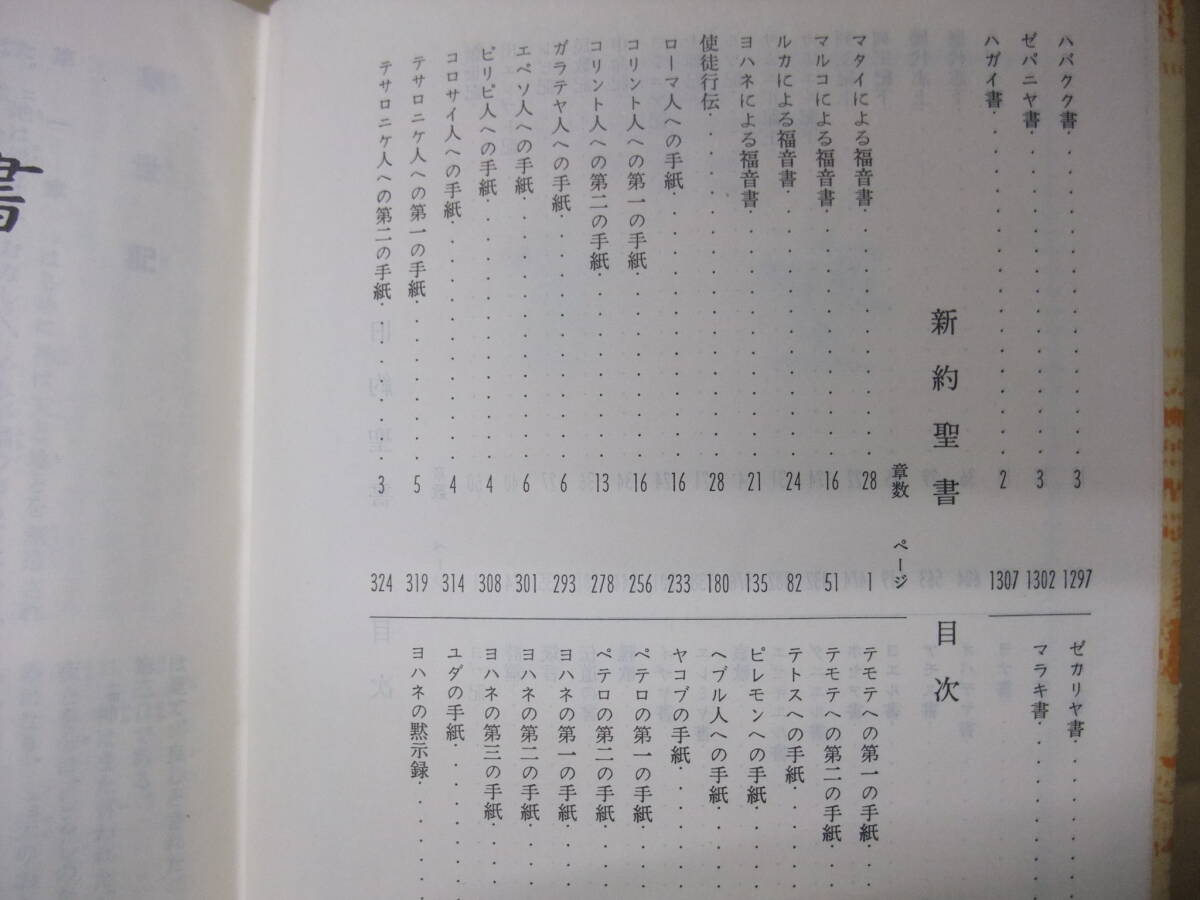 ハバクク書 3 1297
ゼパニヤ書 3 1302
ハガイ書 2 1307
ゼカリヤ書
マラキ書
新約聖書 目次
章数 ページ
マタイによる福音書 28 1
マルコによる福音書 16 51
ルカによる福音書 24 82
ヨハネによる福音書 21 135
使徒行伝 28 180
ローマ人への手紙 16 233
コリント人への第一の手紙 16 256
コリント人への第二の手紙 13 278
ガラテヤ人への手紙 6 293
エペソ人への手紙 6 301
ピリピ人への手紙 4 308
コロサイ人への手紙 4 314
テサロニケ人への第一の手紙 5 319
テサロニケ人への第二の手紙 3 324
テモテへの第一の手紙
テモテへの第二の手紙
テトスへの手紙
ピレモンへの手紙
ヘブル人への手紙
ヤコブの手紙
ペテロの第一の手紙
ペテロの第二の手紙
ヨハネの第一の手紙
ヨハネの第二の手紙
ヨハネの第三の手紙
ユダの手紙
ヨハネの黙示録
書